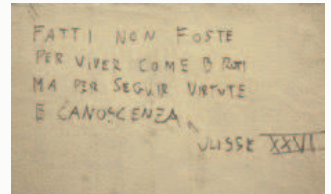 FATTI NON FOSTE
PER VIVER COME BRUTI
MA PER SEGUIR VIRTUTE
E CANOSCENZA
ULISSE XXVI